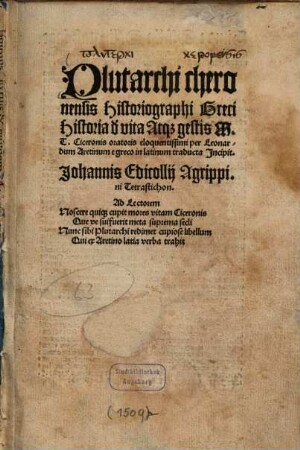 Plutarchi chero
nensis Historiographi Greci
Historia d̄ vita Atqꝫ gestis M.
T. Ciceronis oratoris eloquentissimi per Leonar-
dum Aretinum e greco in latinum traducta Incipit.
Johannis Edicollij Agrippi-
ni Tetrastichon.
Ad Lectorem
Noscere quisqꝫ cupit mores vitam Ciceronis
Que ve suffuerit meta suprema seči
Nunc sibi Plutarchi redimet cupiose libellum
Cui ex Aretino latia verba trahit
63
Stadtbibliothek
Augsburg
(1509)